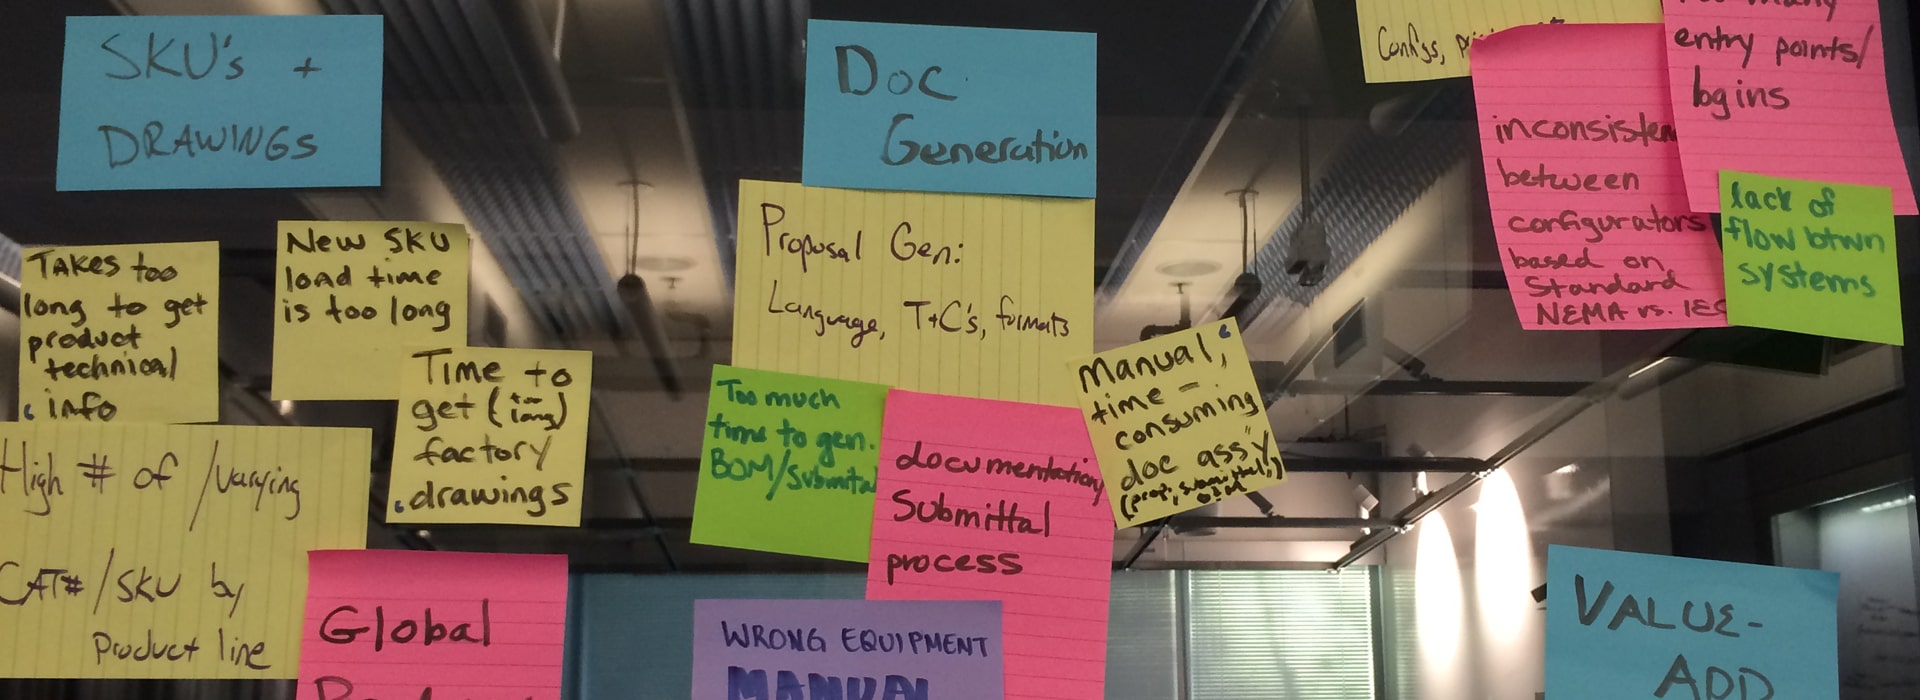 SKU's +
DRAWINGS
TAKES too
long to get
product
technical
info
New SKU
load time
is too long
TIME to
get (too
long)
factory
drawings
High # of /varying
CAT#/SKU by
Product line
Global
DOC
Generation
Proposal Gen:
Language, T+C's, formats
Too much
time to gen.
BOM/submital
documentation
Submittal
process
Manual,
time-
consuming
doc ass'y
WRONG EQUIPMENT
MANUAL
Configs,
entry points/
bgins
inconsisten
between
configurators
based on
Standard
NEMA vs. IEC
lack of
flow btwn
systems
VALUE-
ADD